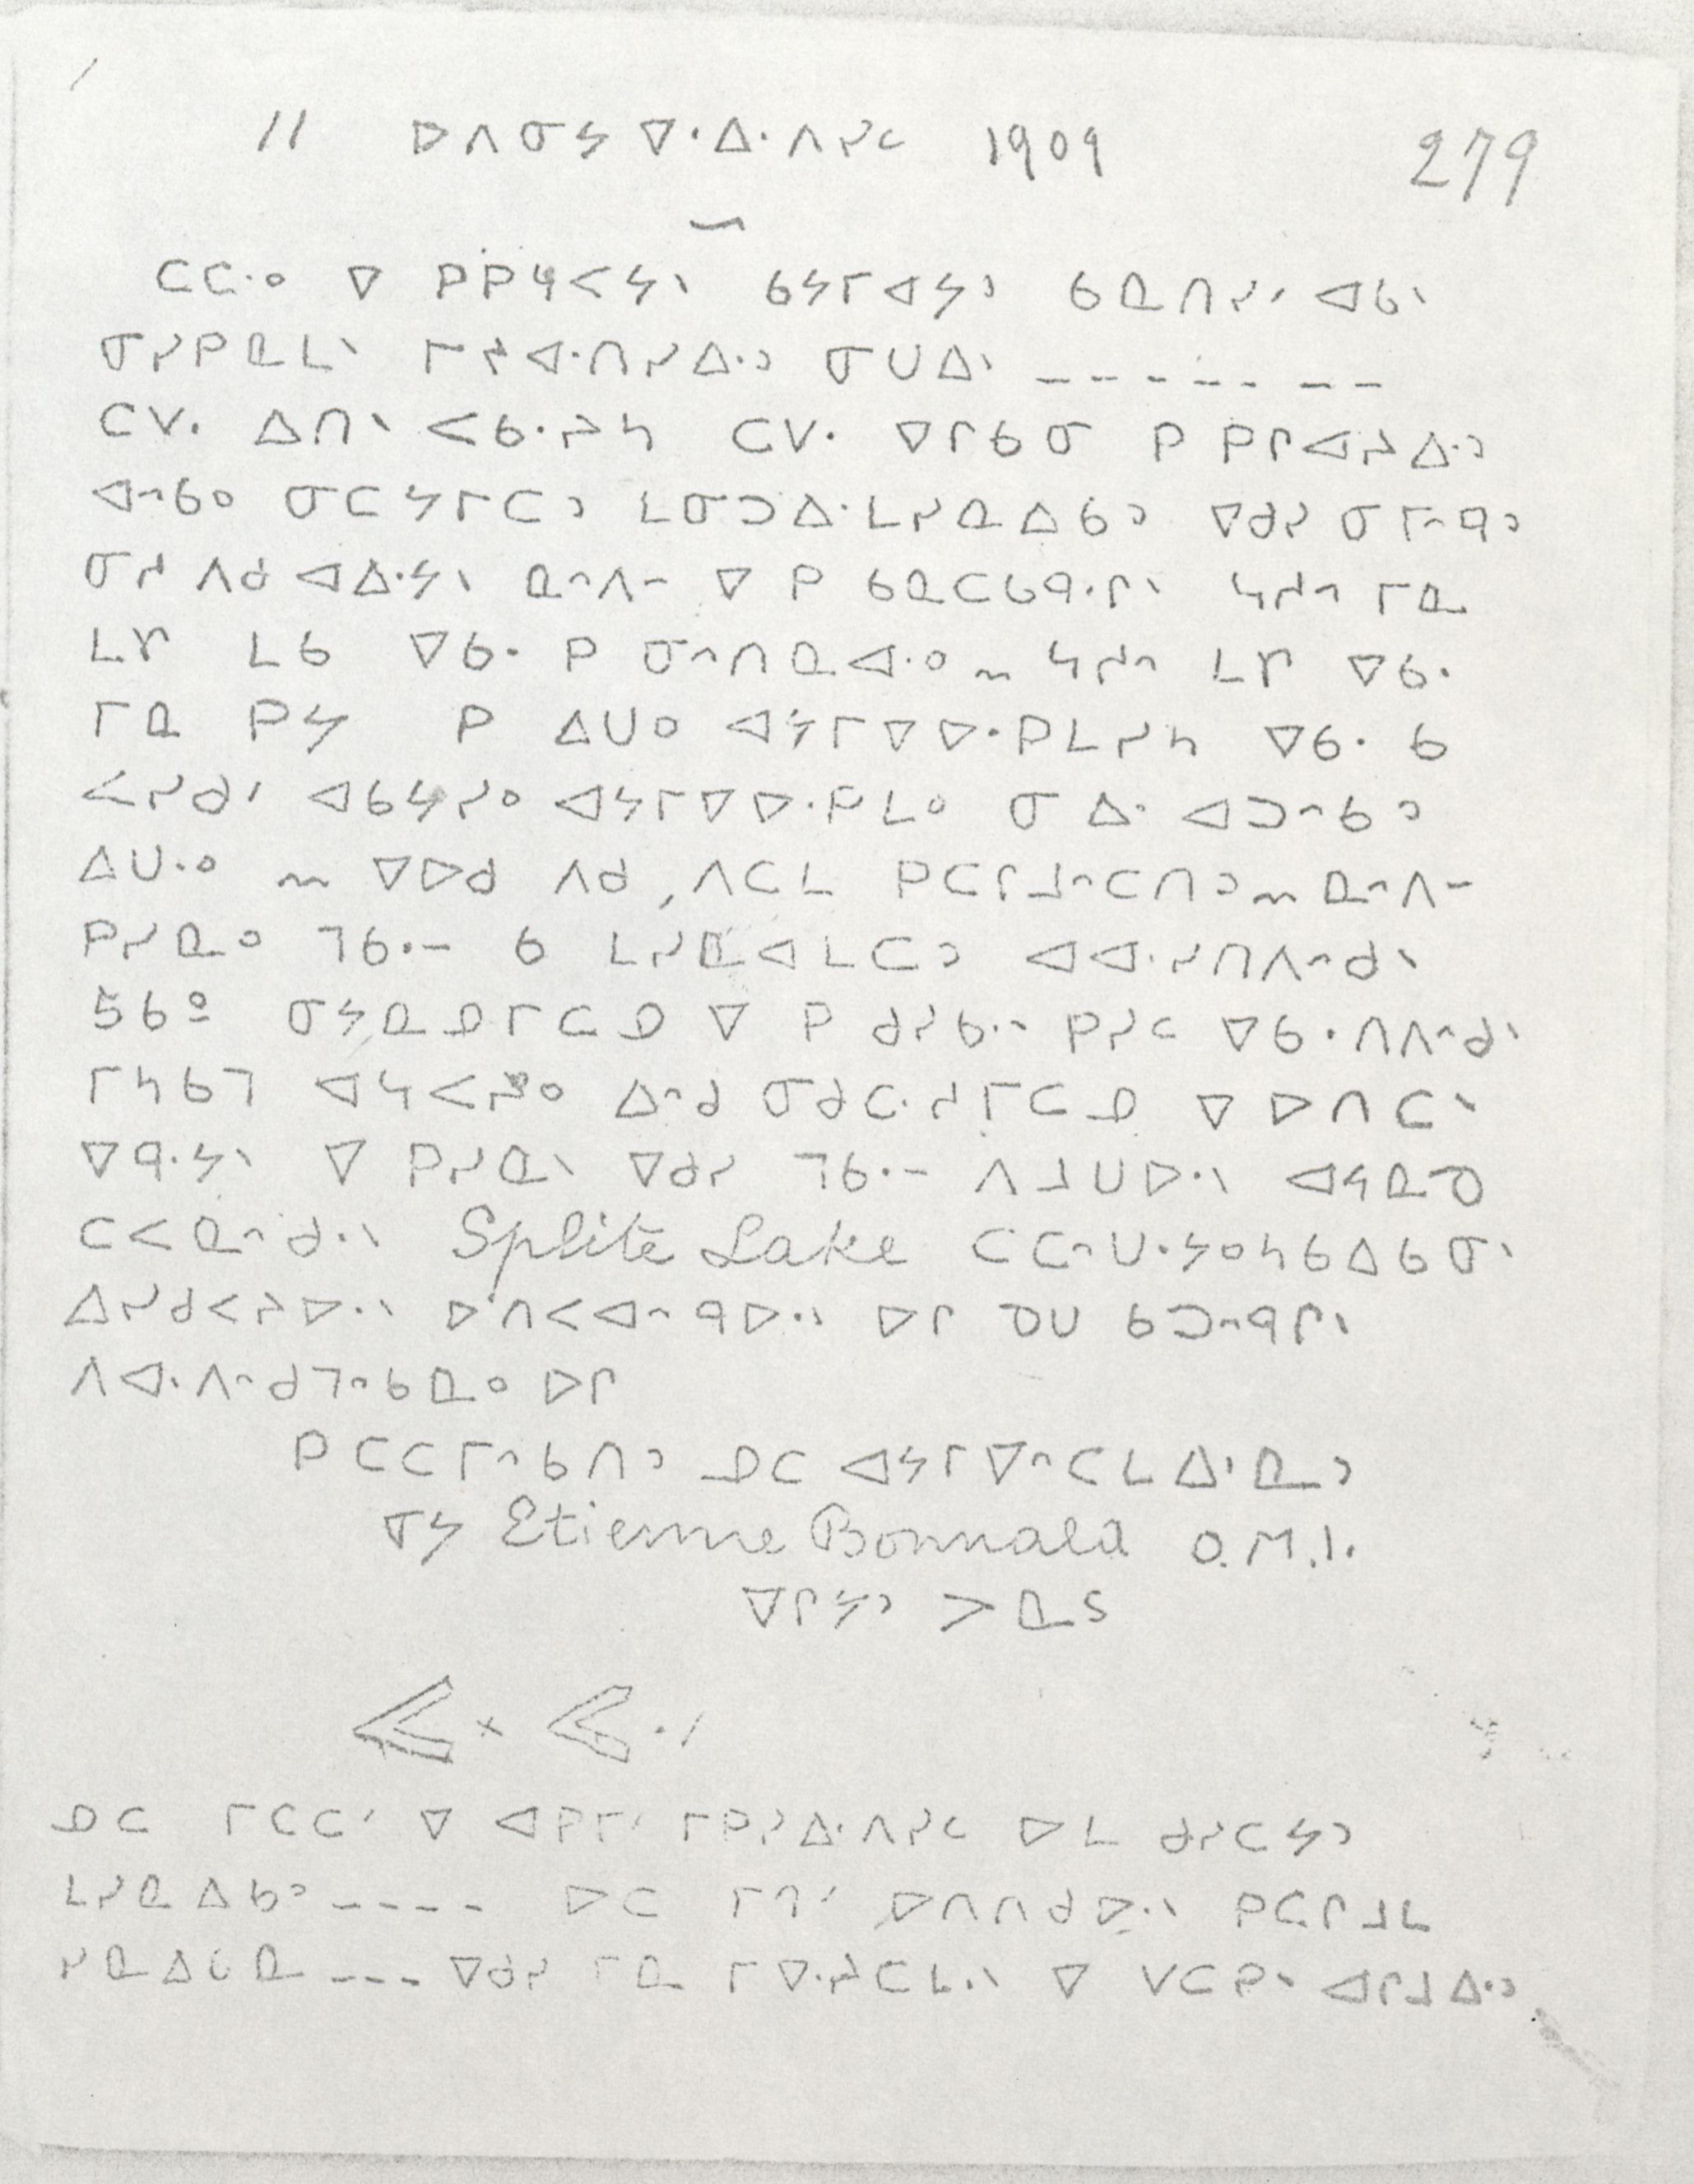 11 ᐅᐱᓂᔭ ᐁᐧᐃᐧᐱᓯᑦ 1909 279
ᑕᑕᐧᐤ ᐁ ᑭᑭᔦᐸᔭᐠ ᑲᔭᒥᐊᔭᐣ ᑲᓇᑎᓯᐟ ᐊᑲᐠ
ᓂᓯᑭᓇᒪᐠ ᒥᔪᐊᐧᑎᓯᐃᐧᐣ ᓂᑌᐃᐠ
ᑕᐯᐧ ᐃᑎᐠ ᐸᑲᐧᓱᓴ ᑕᐯᐧ ᐁᒋᑲᓂ ᑭ ᑭᒋᐊᔨᐃᐧᐣ
ᐊᐢᑲᐤ ᓂᑕᔭᒥᑕᐣ ᒪᓂᑐᐃᐧᒪᓯᓇᐃᑲᐣ ᐁᑯᓯ ᓂ ᒥᐢᑫᐣ
ᓂᓱ ᐱᑯ ᐊᐃᐧᔭᐠ ᓇᐢᐱᐨ ᐁ ᑭ ᑲᓇᑕᑲᑫᐧᒋᐠ ᓴᓱᐢ ᒥᓇ
ᒪᒋ ᒪᑲ ᐁᑲᐧ ᑭ ᓂᐢᑎᓇᐊᐧᐤ ᓴᓱᐢ ᒪᒋ ᐁᑲᐧ
ᒥᓇ ᑭᔭ ᑭ ᐃᑌᐤ ᐊᔭᒥᐁᐅᐧᑭᒪᓯᓴ ᐁᑲᐧ ᑲ
ᐸᓯᑯᐟ ᐊᑲᔭᓯᐤ ᐊᔭᒥᐁᐅᐧᑭᒪᐤ ᓂ ᐃᐧ ᐊᑐᐢᑲᐣ
ᐃᑌᐧᐤ ᐁᐅᑯ ᐱᑯ, ᐱᑕᒪ ᑭᑕᒋᒧᐢᑕᑎᐣ ᓇᐢᐱᐨ
ᑭᓯᓇᐤ ᒣᑲᐧᐨ ᑲ ᒪᓯᓇᐊᒪᑕᐣ ᐊᐊᐧᓯᑎᐱᐢᑯᐠ
56º ᓂᔭᓇᓄᒥᑕᓄ ᐁ ᑭ ᑯᓯᑲᐧᐢ ᑭᓯᑦ ᐁᑲᐧ ᑎᐱᐢᑯᐠ
ᒥᓴᑲᒣ ᐊᓴᐸᔨᐤ ᐃᐢᑯ ᓂᑯᑕᐧᓱᒥᑕᓄ ᐁ ᐅᑎᑕᐠ
ᐁᑫᐧᔭᐠ ᐁ ᑭᓯᓇᐠ ᐁᑯᓯ ᒣᑲᐧᐨ ᐱᒧᑌᐅᐧᐠ ᐊᔭᓇᓀ
ᑕᐸᓇᐢᑯᐧᐠ Splite Lake ᑕᑕᐢᑌᐧᔭᐤᓴᑲᐃᑲᓂᐠ
ᐃᓯᑯᐸᔨᐅᐧᐠ ᐅᐟᑎᐸᐊᐢᑫᐅᐧᐠ ᐅᒋ ᓀᑌ ᑲᑐᐢᑫᒋᐠ
ᐱᐊᐧᐱᐢᑯᒣᐢᑲᓇᐤ ᐅᒋ
ᑭᑕᑕᒥᐢᑲᑎᐣ ᓄᑕ ᐊᔭᒥᐁᐢᑕᒪᐃᐧᓇᐣ
ᓂᔭ Etienne Bonnald O.M.I.
ᐁᒋᔭᐣ ᐳᓇᕒ
ᓄᑕ ᒥᑕᑕᐟ ᐁ ᐊᑭᒥᐟ ᒥᑭᓯᐃᐧᐱᓯᑦ ᐅᒪ ᑯᓯᑕᔭᐣ
ᒪᓯᓇᐃᑲᐣ ---- ᐅᑕ ᒥᒋᐟ ᐅᑎᑎᑯᐅᐧᐠ ᑭᑕᒋᒧᒪ
ᓯᓇᐃᑲᓇ --- ᐁᑯᓯ ᒥᓇ ᒥᐁᐧᔨᑕᒪᐧᐠ ᐁ ᐯᑕᑭᐠ ᐊᒋᒧᐃᐧᐣ